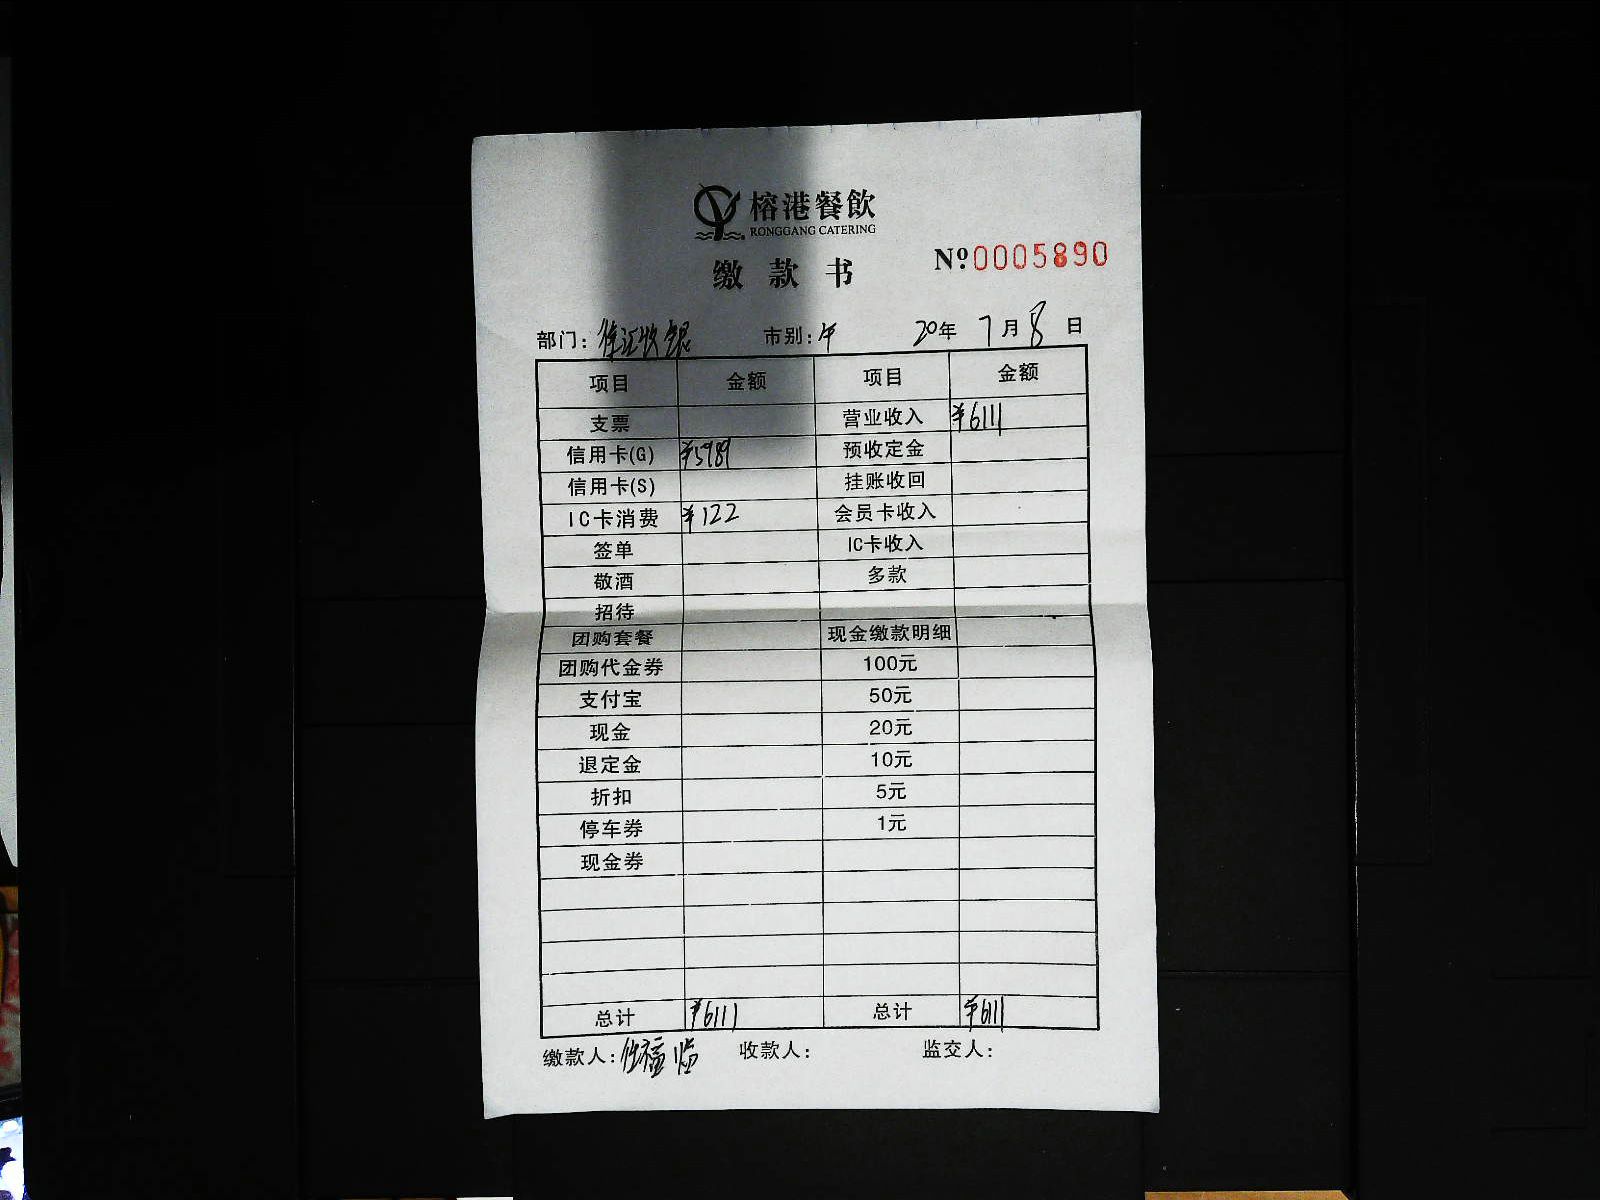 榕港餐飲
RONGGANG CATERING
缴款书
Nº0005890
部门: 徐汇收银 市别: 午 20年 7月 8日
项目 金额 项目 金额
支票 营业收入 ¥6111
信用卡(G) ¥5989 预收定金
信用卡(S) 挂账收回
IC卡消费 ¥122 会员卡收入
签单 IC卡收入
敬酒 多款
招待
团购套餐 现金缴款明细
团购代金券 100元
支付宝 50元
现金 20元
退定金 10元
折扣 5元
停车券 1元
现金券
总计 ¥6111 总计 ¥6111
缴款人: 收款人: 监交人: